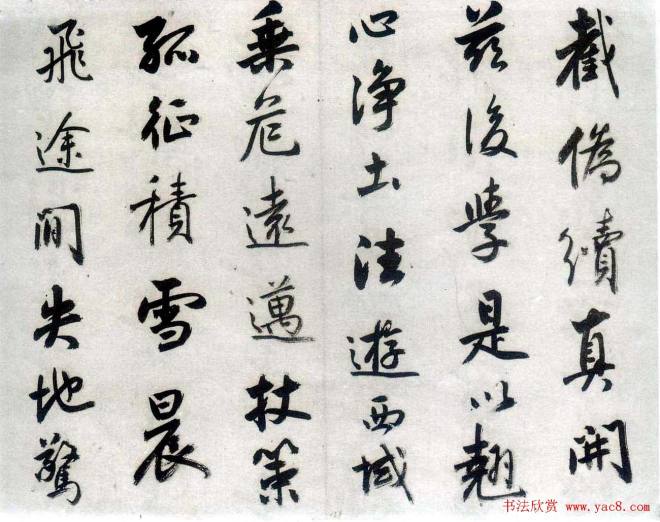 截偽續真開
茲後學是以翹
心淨土法遊西域
乘危遠邁杖策
孤征積雪晨
飛途間失地驚
书法欣赏 www.yac8.com